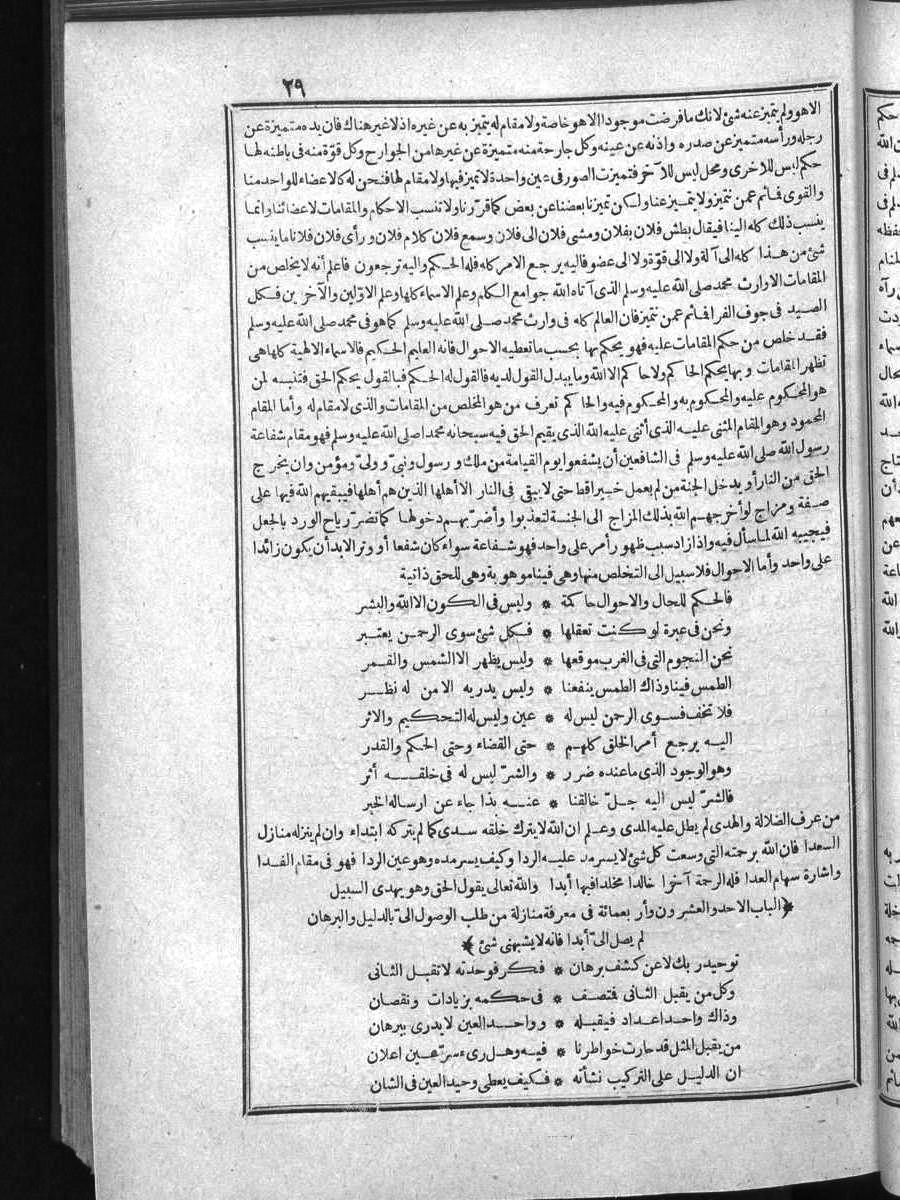 ٢٩
الا هو ولم يتميز عنه شئ لانك ما فرضت موجودا الا هو خاصة ولا مقام له يتميز به عن غيره اذ لا غير هناك فان يده متميزة عن
رجله ورأسه متميز عن صدره واذنه عن عينه وكل جارحة منه متميزة عن غيرها من الجوارح وكل قوّة منه فى باطنه لها
حكم ليس للاخرى ومحل ليس للآخر فتميزت الصور فى عين واحدة لا تميز فيها ولا مقام لها فنحن له كالاعضاء للواحد منا
والقوى فمائم عمن نتميز ولا يتميز عنا ولكن تميزنا بعضنا عن بعض كما قررنا ولا تنسب الاحكام والمقامات لاعضائنا وانما
ينسب ذلك كله الينا فيقال بطش فلان بفلان ومشى فلان الى فلان وسمع فلان كلام فلان ورأى فلان فلانا ما ينسب
شئ من هذا كله الى آلة ولا الى قوّة ولا الى عضو فاليه يرجع الامر كله فله الحكم واليه ترجعون فاعلم أنه لا يخلص من
المقامات الا وارث محمد صلى الله عليه وسلم الذى آتاه الله جوامع الكلم وعلم الاسماء كلها وعلم الاوّلين والآخرين فكل
الصيد فى جوف الفرا فمائم عمن نتميز فان العالم كله فى وارث محمد صلى الله عليه وسلم كما هو فى محمد صلى الله عليه وسلم
فقد خلص من حكم المقامات عليه فهو يحكم بها بحسب ما تعطيه الاحوال فانه العليم الحكيم فالاسماء الالهية كلها هى
تظهر المقامات وبها يحكم الحاكم ولا حاكم الا الله وما يبدل القول لديه فالقول له الحكم فبالقول يحكم الحق فتنبه لمن
هو المحكوم عليه والمحكوم به والمحكوم فيه والحاكم تعرف من هو المخلص من المقامات والذى لا مقام له وأما المقام
المحمود وهو المقام المثنى عليه الذى أثنى عليه الله الذى يقيم الحق فيه سبحانه محمدا صلى الله عليه وسلم فهو مقام شفاعة
رسول الله صلى الله عليه وسلم فى الشافعين أن يشفعوا يوم القيامة من ملك ورسول ونبىّ وولىّ ومؤمن وان يخرج
الحق من النار أو يدخل الجنة من لم يعمل خيرا قط حتى لا يبقى فى النار الا أهلها الذين هم أهلها فيبقيهم الله فيها على
صفة ومزاج لو أخرجهم الله بذلك المزاج الى الجنة لتعذبوا وأضرّ بهم دخولها كما تضرّ رياح الورد بالجعل
فيجيبه الله لما سأل فيه واذا زاد سبب ظهور أمر على واحد فهو شفاعة سواء كان شفعا أو وترا لابد أن يكون زائدا
على واحد وأما الاحوال فلا سبيل الى التخلص منها وهى فينا موهوبة وهى للحق ذاتية
فالحكم للحال والاحوال حاكمة * وليس فى الكون الا الله والبشر
ونحن فى عبرة لو كنت تعقلها * فكل شئ سوى الرحمن يعتبر
نحن النجوم التى فى الغرب موقعها * وليس يظهر الا الشمس والقمر
الطمس فينا وذاك الطمس ينفعنا * وليس يدريه الا من له نظر
فلا تخف فسوى الرحمن ليس له * عين وليس له التحكيم والاثر
اليه يرجع أمر الخلق كلهم * حتى القضاء وحتى الحكم والقدر
وهو الوجود الذى ما عنده ضرر * والشرّ ليس له فى خلقه أثر
فالشرّ ليس اليه جلّ خالقنا * عنه بذا جاء عن ارساله الخبر
من عرف الضلالة والهدى لم يطل عليه المدى وعلم ان الله لا يترك خلقه سدى كما لم يتركه ابتداء وان لم ينزله منازل
السعدا فان الله برحمته التى وسعت كل شئ لا يسرمد عليه الردا وكيف يسرمده وهو عين الردا فهو فى مقام الفدا
واشارة سهام العدا فله الرحمة آخرا خالدا مخلدا فيها أبدا والله تعالى يقول الحق وهو يهدى السبيل
﴿الباب الاحد والعشرون وأربعمائة فى معرفة منازلة من طلب الوصول الىّ بالدليل والبرهان
لم يصل الىّ أبدا فانه لا يشبهنى شئ﴾
توحيد ربك لا عن كشف برهان * فكر فوحدته لا تقبل الثانى
وكل من يقبل الثانى فتصف * فى حكمه بزيادات ونقصان
وذاك واحد اعداد فيقبله * وواحد العين لا يدرى ببرهان
من يقبل المثل قد حارت خواطرنا * فيه وهل رىء سرّ عين اعلان
ان الدليل على التركيب نشأته * فكيف يعطى وحيد العين فى الشان